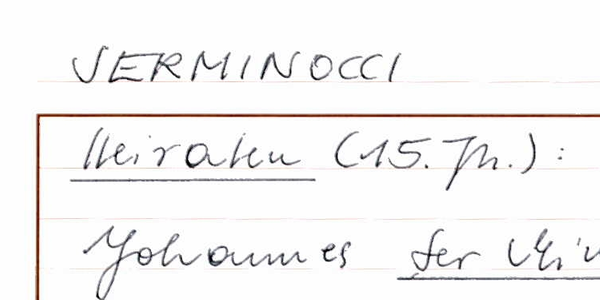 SERMINOCCI
Heiraten (15. Jh.):
Johannes Ser